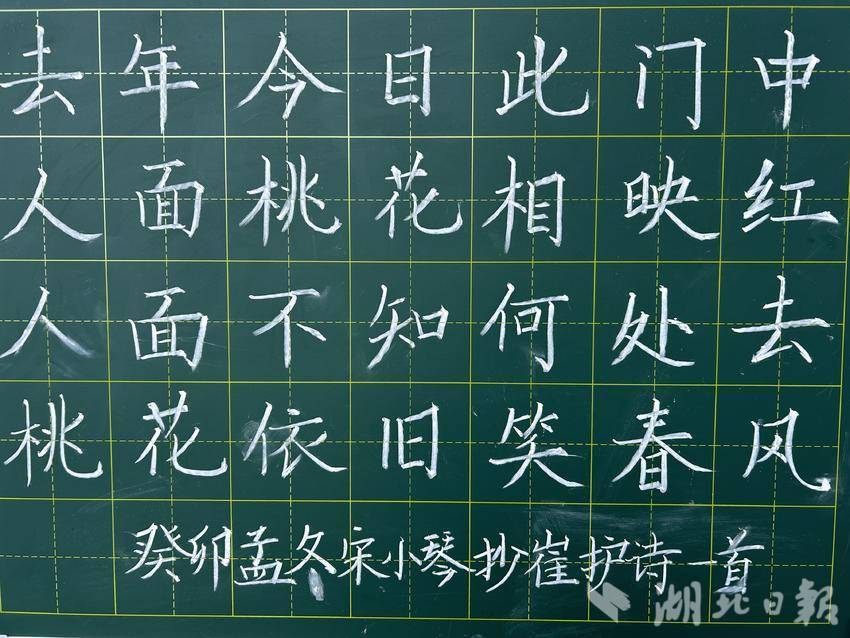 去年今日此门中
人面桃花相映红
人面不知何处去
桃花依旧笑春风
癸卯孟冬宋小琴抄崔护诗一首
湖北日报